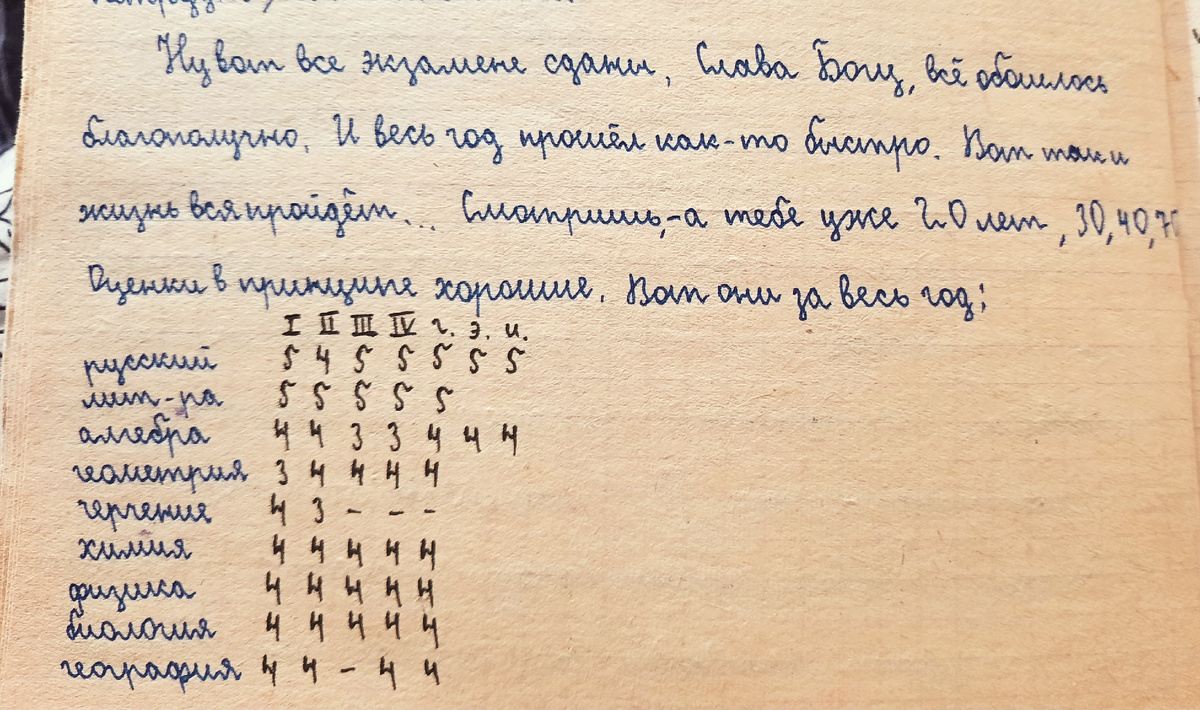 Ну вот все экзамене сданы, Слава Богу, всё обошлось
благополучно. И весь год прошёл как-то быстро. Вот так и
жизнь вся пройдёт... Смотришь,-а тебе уже 20 лет, 30, 40, 70
Оценки в принципе хорошие. Вот они за весь год:
I II III IV г. э. и.
русский 5 4 5 5 5 5 5
лит-ра 5 5 5 5 5
алгебра 4 4 3 3 4 4 4
геометрия 3 4 4 4 4
черчение 4 3 - - -
химия 4 4 4 4 4
физика 4 4 4 4 4
биология 4 4 4 4 4
география 4 4 - 4 4